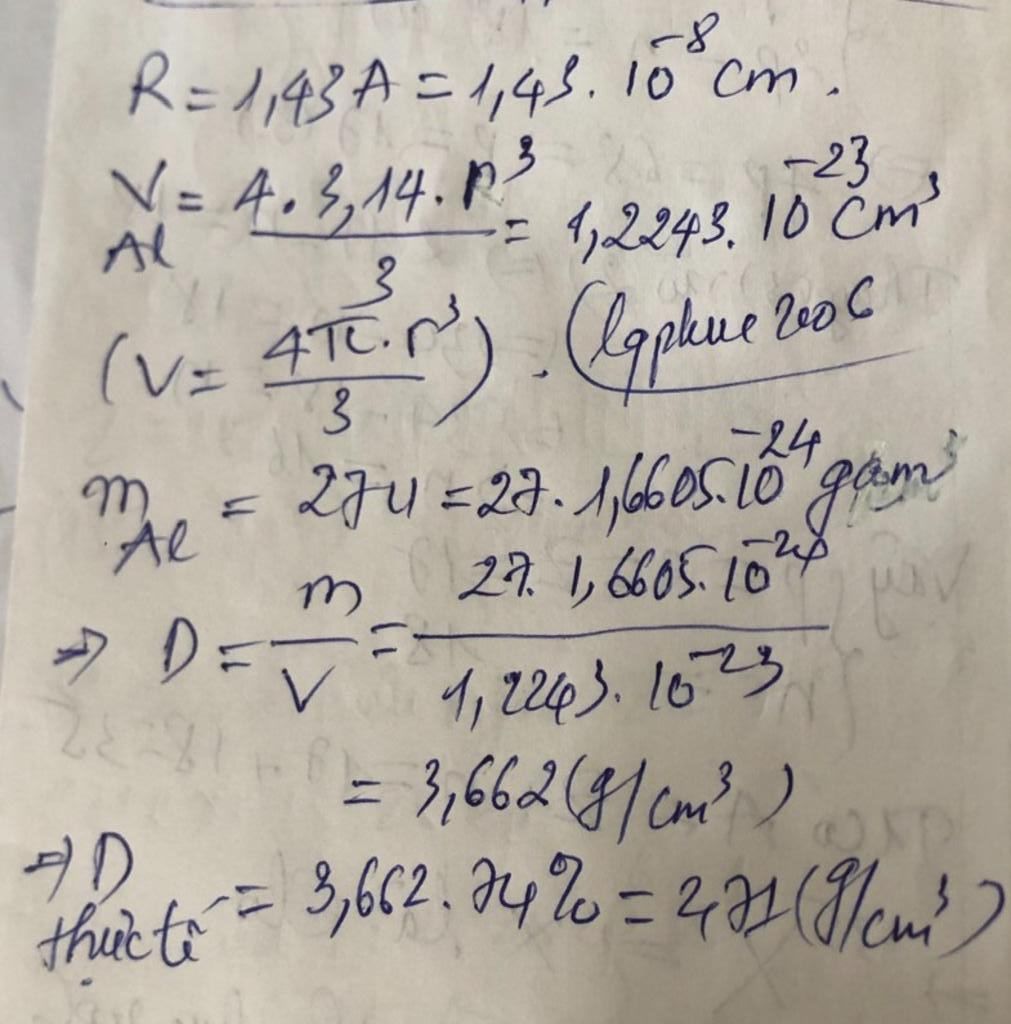 R = 1,43 A = 1,43. 10⁻⁸ cm.
V_Al = (4. 3,14. r³)/3 = 1,2243. 10⁻²³ cm³
(V = (4π. r³)/3).
m_Al = 27u = 27. 1,6605. 10⁻²⁴ gam
⇒ D = m/V = (27. 1,6605. 10⁻²⁴)/(1,2243. 10⁻²³)
= 3,662 (g/cm³)
⇒ D thực tế = 3,662. 74% = 2,71 (g/cm³)